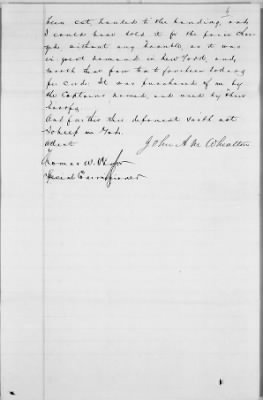 been cut, hauled to the landing, and
I could have sold it for the price there
without any trouble, as it was
in great demand in New York, and
worth that from ten to fourteen dollars
per cord. It was purchased of me by
the Captains named, and used by their
troops.
And further this deponent saith not
So help me God.
attest
John A M Whealton
Thomas W.
Special Commissioner